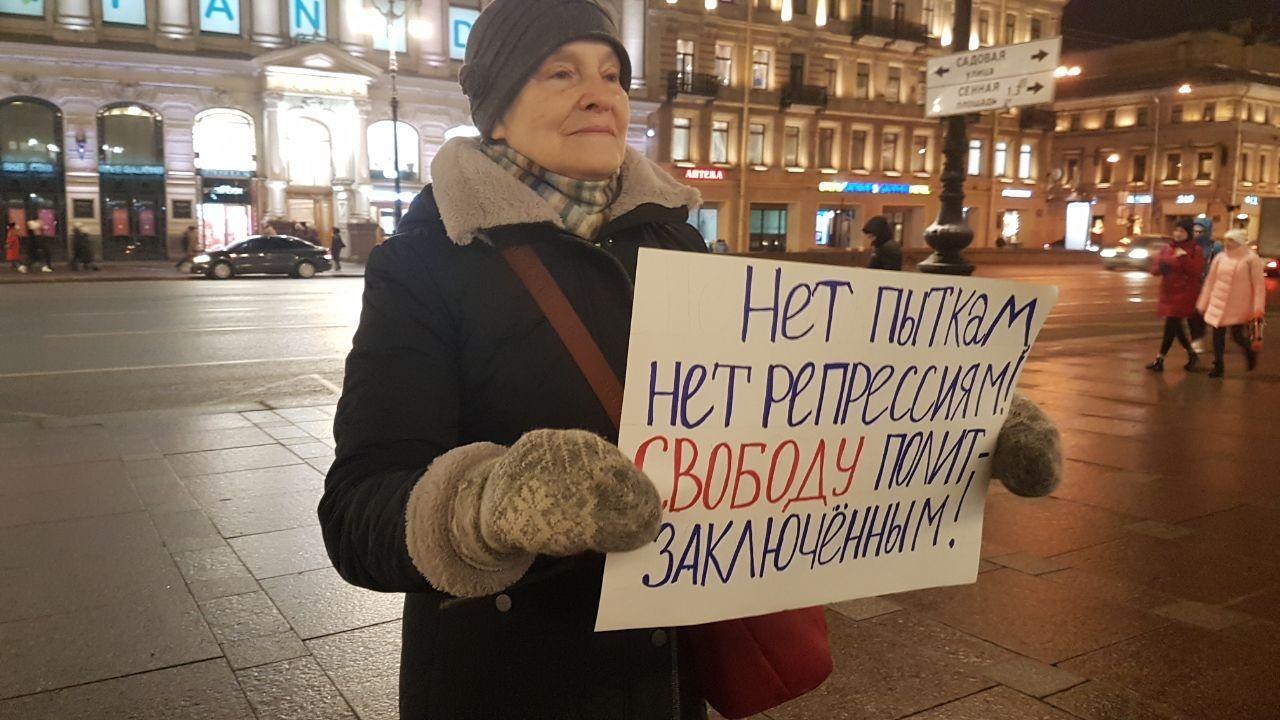 AND
САДОВАЯ
улица
СЕННАЯ
площадь
АПТЕКА
Нет пыткам,
нет репрессиям!
СВОБОДУ полит-
заключённым!